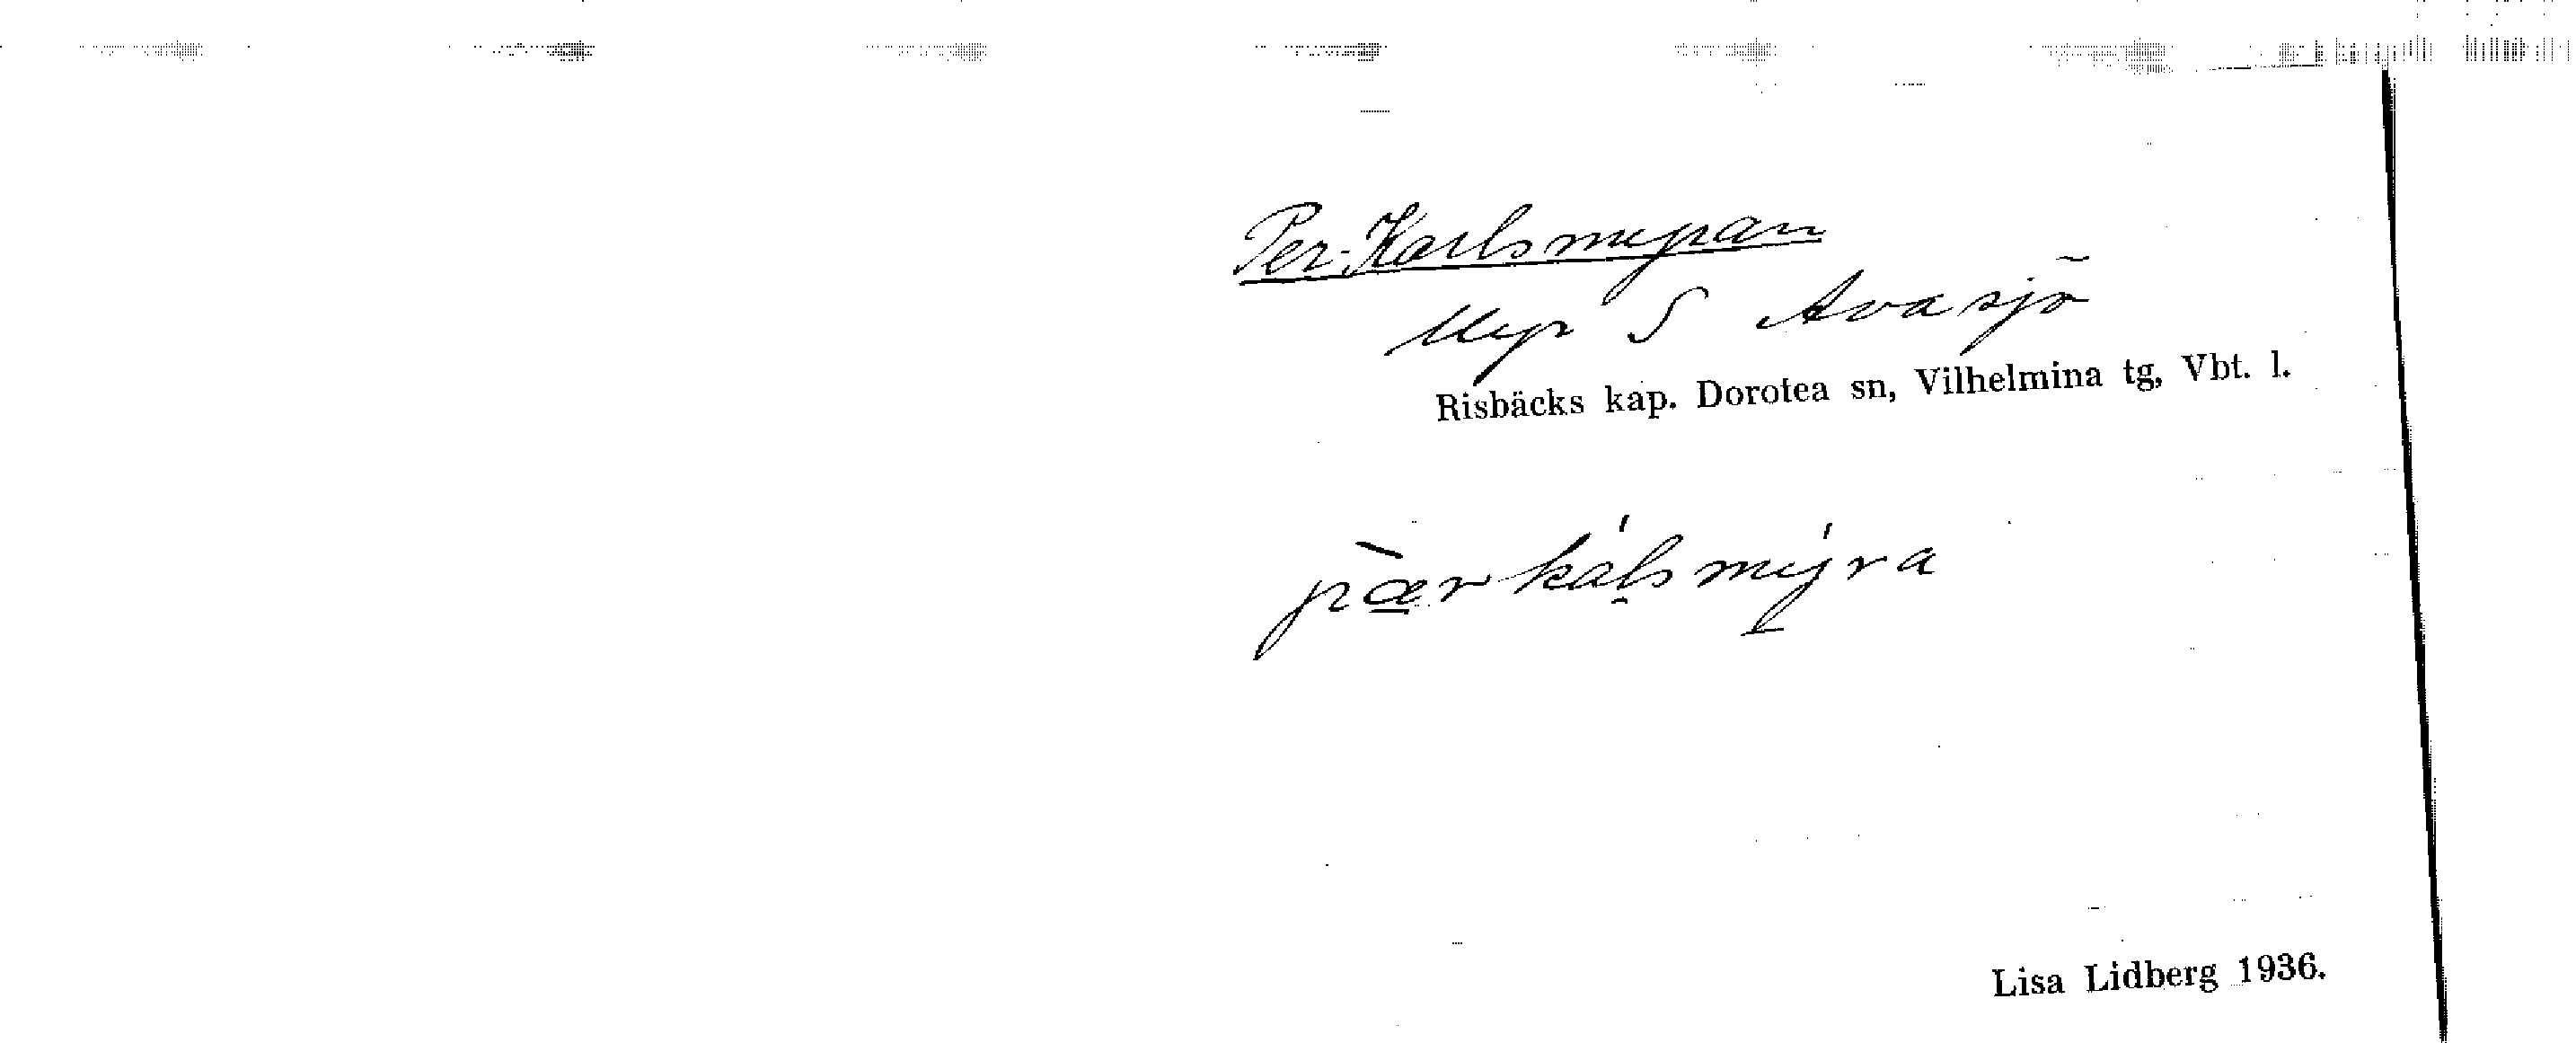 Per-Karlsmyran
Myr S Avasjö
Risbäcks kap. Dorotea sn, Vilhelmina tg, Vbt. l.
pær kálsmýra
Lisa Lidberg 1936.